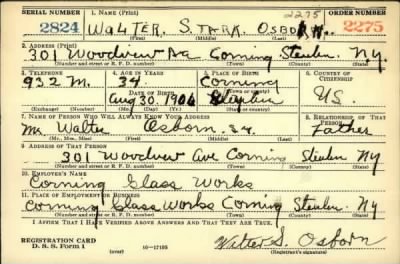 SERIAL NUMBER 1. NAME (Print) 2275 ORDER NUMBER
2824 WALTER. STARK OSBORN. 2275
(First) (Middle) (Last)
2. ADDRESS (Print)
301 Woodview Ave Corning Steuben N.Y.
(Number and street or R. F. D. number) (Town) (County) (State)
3. TELEPHONE 4. AGE IN YEARS 5. PLACE OF BIRTH 6. COUNTRY OF CITIZENSHIP
932 M. 34 Corning
DATE OF BIRTH (Town or county)
Aug 30 1906 U.S.
(Exchange) (Number) (Mo.) (Day) (Yr.) (State or country)
7. NAME OF PERSON WHO WILL ALWAYS KNOW YOUR ADDRESS 8. RELATIONSHIP OF THAT PERSON
Mr. Walter Osborn. Father
(Mr., Mrs., Miss) (First) (Middle) (Last)
9. ADDRESS OF THAT PERSON
301 Woodview Ave Corning Steuben NY
(Number and street or R. F. D. number) (Town) (County) (State)
10. EMPLOYER'S NAME
Corning Glass Works
11. PLACE OF EMPLOYMENT OR BUSINESS
Corning Glass Works Corning Steuben. NY
(Number and street or R. F. D. number) (Town) (County) (State)
I AFFIRM THAT I HAVE VERIFIED ABOVE ANSWERS AND THAT THEY ARE TRUE.
REGISTRATION CARD
D. S. S. Form 1 (over) 16—17105 Walter S. Osborn
(Registrant's signature)